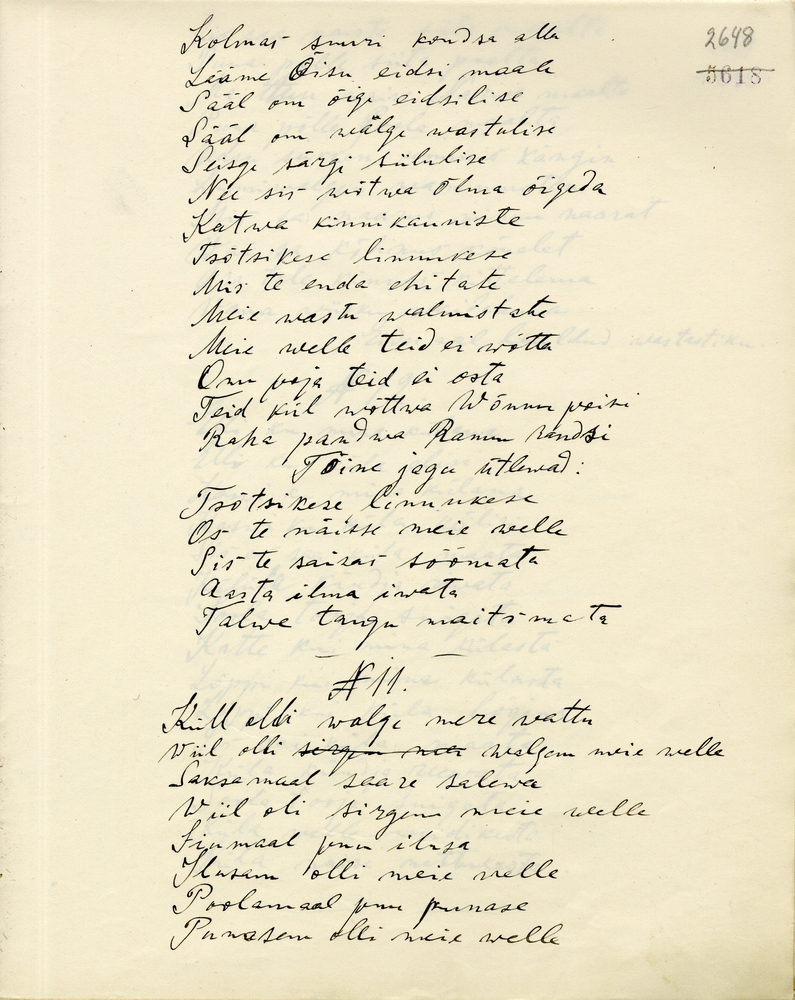 2648
5618
Kolmas suuri kondsa alla
Lääme Õisu eidsi maale
Sääl om õige eidsilise
Sääl om wälge wastulise
Seisge särgi siilulise
Nee sis wõtwa õlma õigeda
Katwa kinni kauniste
Tsõtsikese linnukese
Mis te enda ehitate
Meie wastu walmistate
Meie welle teid ei wõtta
Onu poja teid ei osta
Teid kül wõttwa Wõnnu poisi
Raha pandwa Rannu randsi
Tõine jagu ütlewad:
Tsõtsikese linnukese
Os te näisse meie welle
Sis te saisas söömata
Aasta ilma iwata
Talwe tangu maitsmata
N 11.
Küll olli walge mere wattu
Wiil olli sirgem mei walgem meie welle
Saksamaal saare salewa
Wiil oli sirgem meie welle
Siumaal puu ilusa
Ilusam olli meie welle
Poolamaal puu punase
Punasem olli meie welle